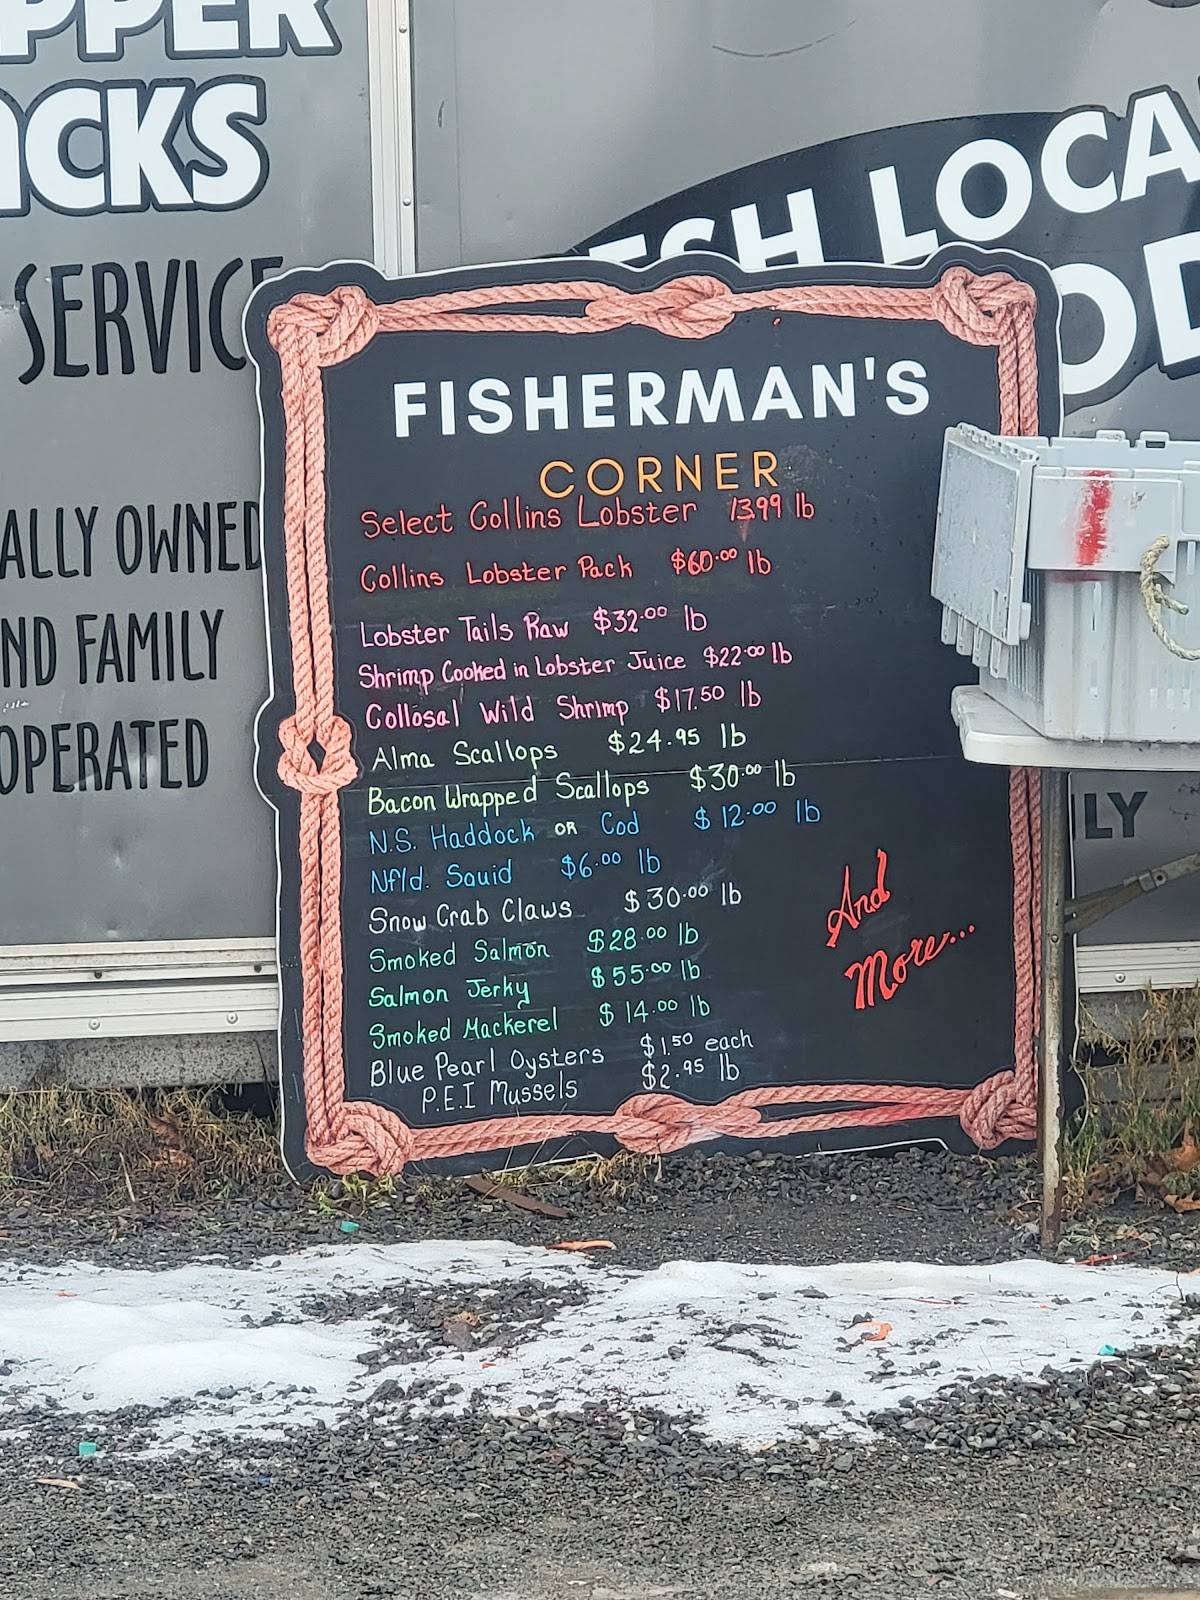 PPER
CKS
SERVIC
ALLY OWNED
ND FAMILY
OPERATED
SH LOCA
OD
LY
FISHERMAN'S
CORNER
Select Collins Lobster 13.99 lb
Collins Lobster Pack $60.00 lb
Lobster Tails Raw $32.00 lb
Shrimp Cooked in Lobster Juice $22.00 lb
Collosal Wild Shrimp $17.50 lb
Alma Scallops $24.95 lb
Bacon Wrapped Scallops $30.00 lb
N.S. Haddock OR Cod $12.00 lb
Nfld. Squid $6.00 lb
Snow Crab Claws $30.00 lb
Smoked Salmon $28.00 lb
Salmon Jerky $55.00 lb
Smoked Mackerel $14.00 lb
Blue Pearl Oysters $1.50 each
P.E.I Mussels $2.95 lb
And
More...